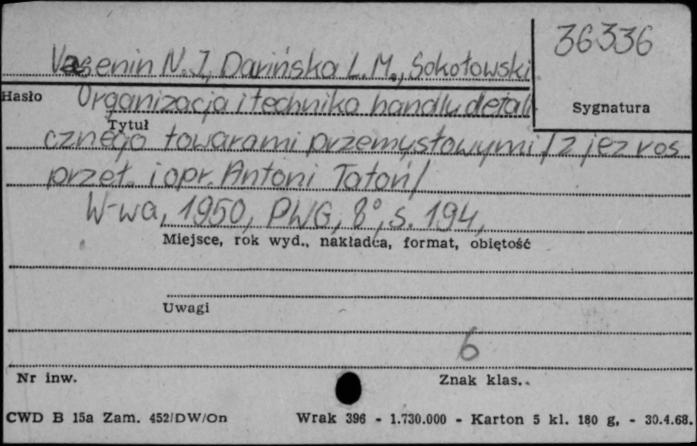 36336
Vesenin N.J., Darińska L.M., Sokołowski
Hasło
Sygnatura
Organizacja i technika handlu detali
Tytuł
cznego towarami przemysłowymi /z jez ros
przeł. i opr. Antoni Tatoń/
W-wa, 1950, PWG, 8°, s. 194,
Miejsce, rok wyd., nakładca, format, obiętość
Uwagi
6
Nr inw.
Znak klas..
CWD B 15a Zam. 452/DW/On Wrak 396 - 1.730.000 - Karton 5 kl. 180 g, - 30.4.68.